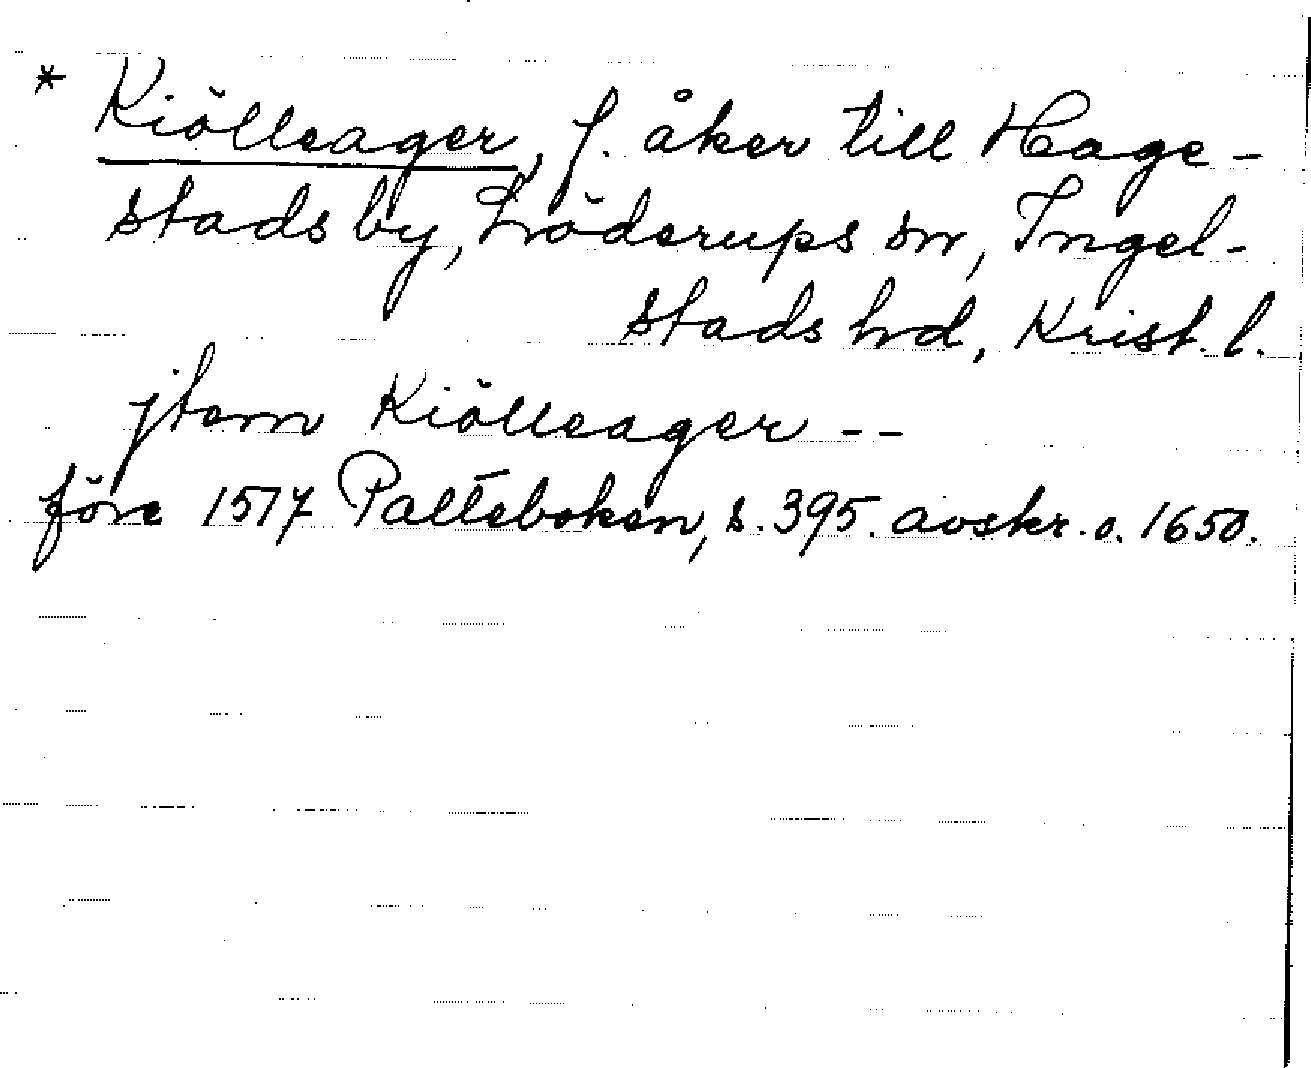 * Kiölleager, f. åker till Hage-
stads by, Löderups sn, Ingel-
stads hrd, Krist. l.
jtem Kiölleager --
före 1517 Palteboken, s. 395. avskr. o. 1650.